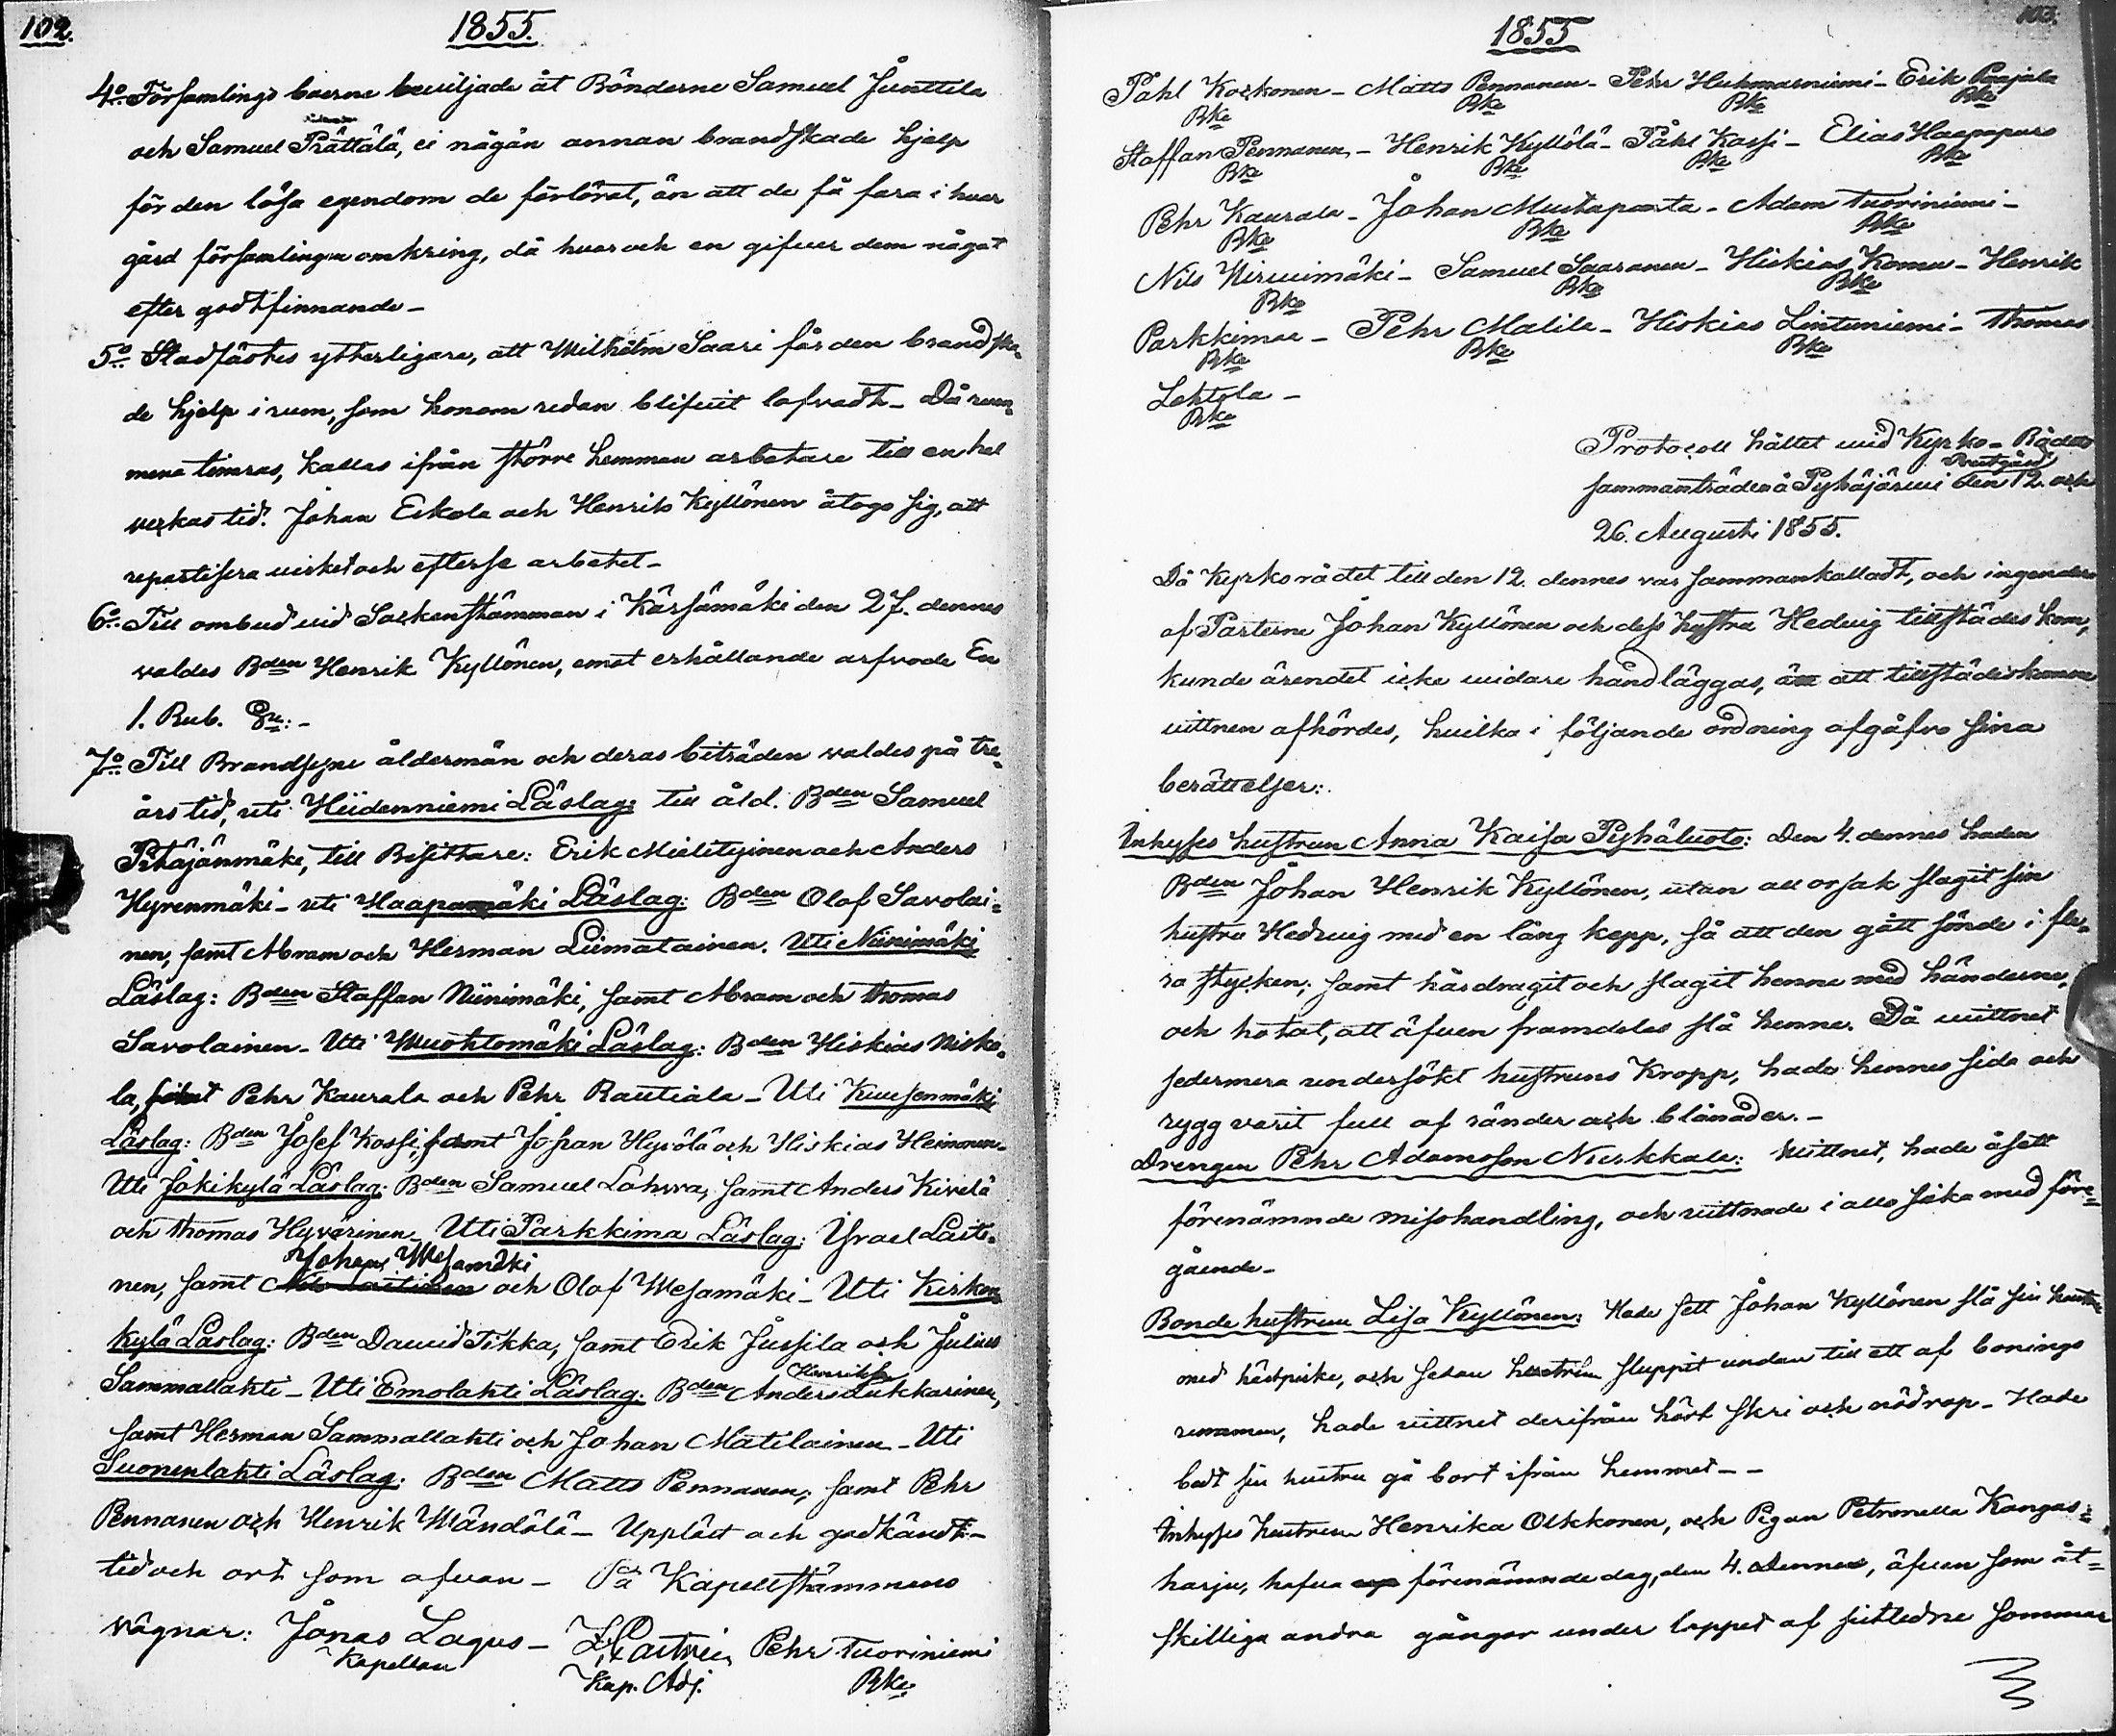 102.
1855.
4o. Församlings boerne beviljade åt Bönderne Samuel Junttila
och Samuel Prättälä, ei någån annan brandskade hjelp
för den lösa egendom de förlörat, än att de få fara i hvar
gård församlingen omkring, då hvar och en gifver dem något
efter godtfinnande –
5o. Stadfästes ytterligare, att Wilhelm Saari får den brandska-
de hjelp i rum, som honom redan blifvit lofvadt – Då rum-
mena timras, kallas ifrån större hemman arbetare till en hel
veckas tid. Johan Eskola och Henrik Kyllönen åtogo sig, att
repartisera virket och efterse arbetet –
6o. Till ombud vid Sockenstämman i Kärsämäki den 27. dennes
valdes Bden Henrik Kyllönen, emot erhållande arfvode En
1. Rub. Sr: –
7o. Till Brandsyne åldermän och deras biträden valdes på tre-
års tid, uti Hiidenniemi Läslag: till åld. Bden Samuel
Pitäjänmäki, till Bisittare: Erik Mieletyinen och Anders
Hyvenmäki – uti Haapamäki Läslag: Bden Olof Savolai-
nen, samt Abram och Herman Liimatainen. Uti Niinimäki
Läslag: Bden Staffan Niinimäki, samt Abram och Thomas
Savolainen – Uti Wuohtomäki Läslag: Bden Hiskias Nisko-
la, samt Pehr Kaurala och Pehr Rautiala – Uti Kuusenmäki
Läslag: Bden Josef Kossi, samt Johan Hyvölä och Hiskias Heimonen –
Uti Jokikylä Läslag: Bden Samuel Lohvva, samt Anders Kivelä
och Thomas Hyvärinen – Uti Parkkima Läslag: Israel Laiti-
Johan Wesamäki
nen, samt Nils Laitinen och Olof Wesamäki – Uti Kirkon-
kylä Läslag: Bden David Tikka, samt Erik Jussila och Julius
Henriksson
Sammallahti – Uti Emolahti Läslag: Bden Anders Lukkarinen,
samt Herman Sammallahti och Johan Matilainen – Uti
Suonenlahti Läslag: Bden Matts Pennanen, samt Pehr
Pennanen och Henrik Wändälä – Uppläst och godkändt –
tid och ort som ofvan – På Kapellstämmans
vägnar: Jonas Lagus – Castrén Pehr Tuoriniemi
Kapellan Kap. Adj. Bke
103.
1855
Påhl Koskonen – Matts Pennanen – Pehr Huhmarniemi – Erik Paajala
Bke Bke Bke Bke
Staffan Pennanen – Henrik Kyllölä – Påhl Kossi – Elias Haapapuro
Bke Bke Bke Bke
Pehr Kaurala – Johan Mustaparta – Adam Tuoriniemi –
Bke Bke Bke
Nils Hirvimäki – Samuel Saaranen – Hiskias Komu – Henrik
Bke Bke Bke
Parkkimae – Pehr Malila – Hiskias Lintuniemi – Thomas
Bke Bke Bke
Lehtola –
Bke
Protocoll hållet vid Kyrko-Rådets
Prestgård
sammanträden å Pyhäjärvi den 12. och
26. Augusti 1855.
Då Kyrkorådet till den 12. dennes var sammankalladt, och ingendera
af Parterne Johan Kyllönen och dess hustru Hedvig tillstädes kom,
kunde ärendet icke vidare handläggas, än att tillstädeskomne
vittnen afhördes, hvilka i följande ordning afgåfvo sina
berättelser:.
Inhyses hustrun Anna Kaisa Pyhäluoto: Den 4. dennes haden
Bden Johan Henrik Kyllönen, utan all orsak slagit sin
hustru Hedvig med en lång kepp, så att den gått sönde i fle-
ra stycken; samt hårdragit och slagit henne med händerne,
och hotat, att äfven framdeles slå henne. Då vittnet
sedermera undersökt hustruns Kropp, hade hennes sida och
rygg varit full af ränder och blånader. –
Drengen Pehr Adamsson Nurkkala: Vittnet, hade åsett
förenämnde misshandling, och vittnade i allo lika med före-
gående –
Bonde hustrun Lisa Kyllönen: Hade sett Johan Kyllönen slå sin hustru
med hästpiska, och sedan hustrun sluppit undan till ett af bonings
rummen, hade vittnet derifrån hört skri och nödrop – Hade
bedt sin hustru gå bort ifrån hemmet – –
Inhyses hustrun Henrika Olkkonen, och Pigan Petronella Kangas-
harju, hafva förenämnde dag, den 4. dennes, äfven som åt-
skilliga andra gångor under loppet af sistledne sommar